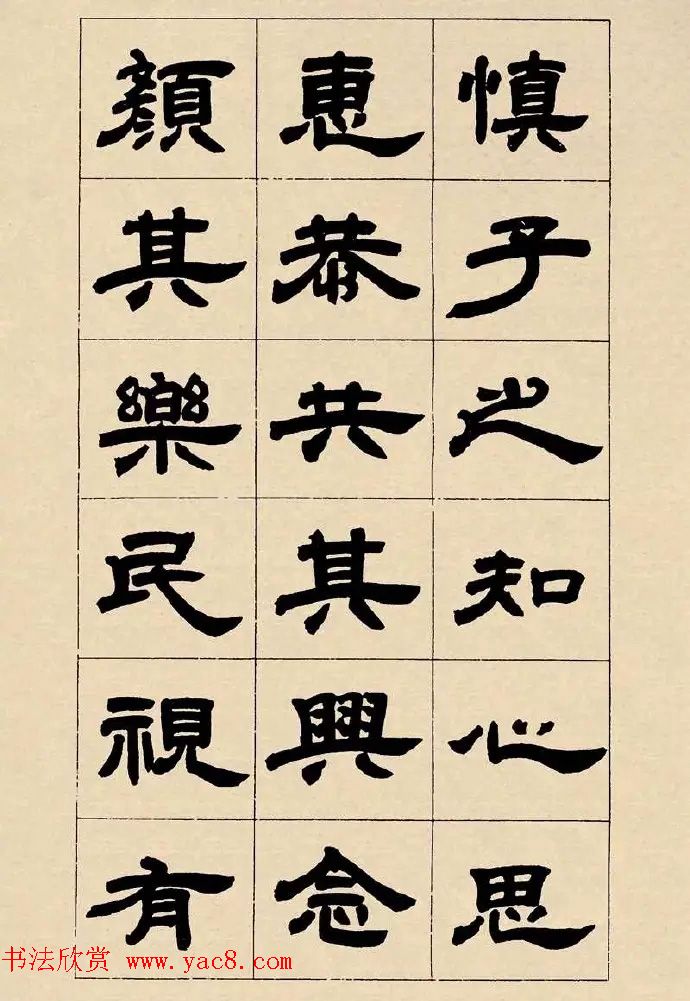 慎子之知心思
惠恭共其興念
顏其樂民視有
书法欣赏 www.yac8.com